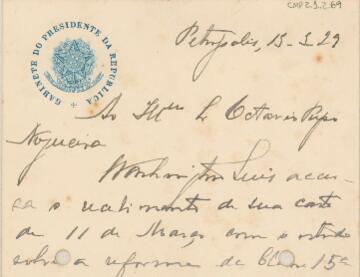 CMP 2.1.2.69
GABINETE DO PRESIDENTE DA REPUBLICA
Petropolis, 15-3-29
Ao Illmo Sr Octavio
Nogueira
Washington Luis accu-
sa o de sua carta
de 11 de Março com o estudo
sobre a reforma da 15ª